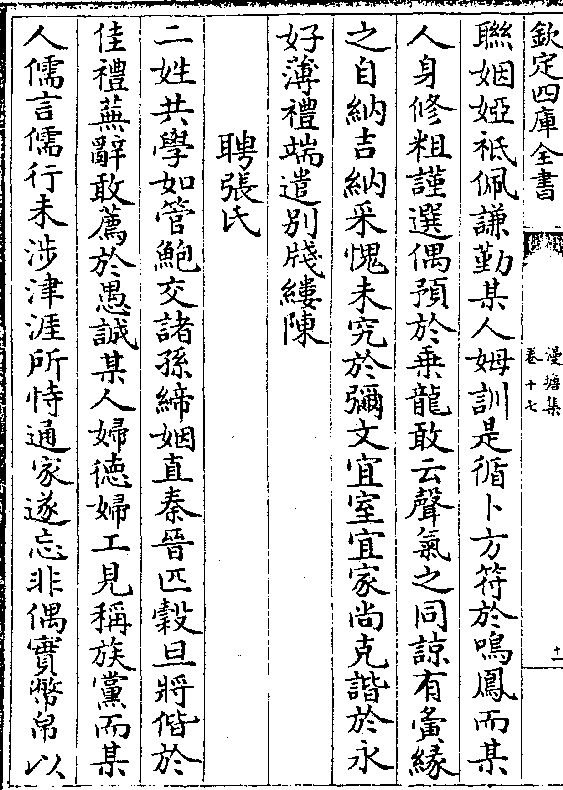 欽定四庫全書
漫塘集
卷十七
十一
聯姻婭祗佩謙勤某人姆訓是循卜方符於鳴鳳而某
人身修粗謹選偶預於乗龍敢云聲氣之同諒有夤縁
之自納吉納采愧未究於彌文宜室宜家尚克諧於永
好薄禮端遣别牋縷陳
聘張氏
二姓共學如管鮑交諸孫締姻直秦晉匹穀旦將偕於
佳禮蕪辭敢薦於愚誠某人婦徳婦工見稱族黨而某
人儒言儒行未涉津涯所恃通家遂忘非偶實幣帛以